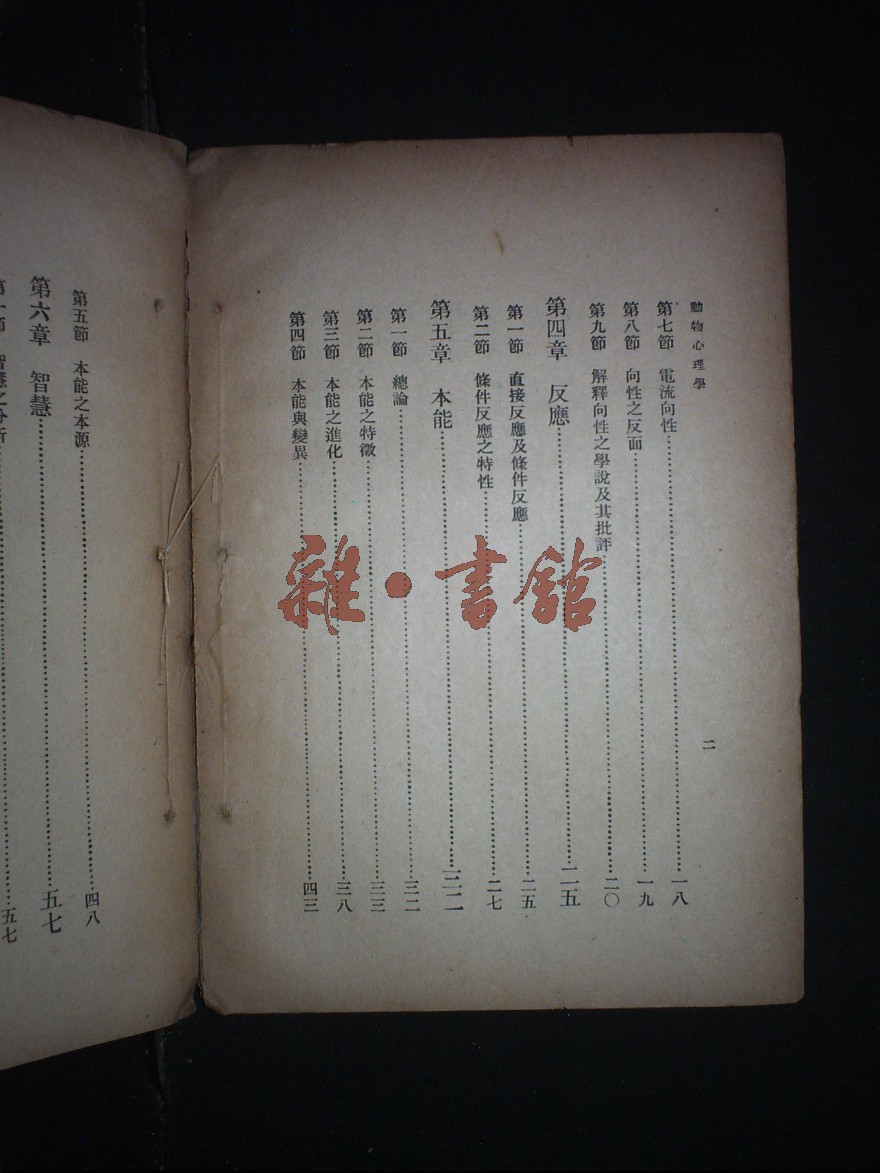 動物心理學
二
第七節 電流向性 一八
第八節 向性之反面 一九
第九節 解釋向性之學說及其批評 二〇
第四章 反應 二五
第一節 直接反應及條件反應 二五
第二節 條件反應之特性 二七
第五章 本能 三二
第一節 總論 三二
第二節 本能之特徵 三三
第三節 本能之進化 三八
第四節 本能與變異 四三
第五節 本能之本源 四八
第六章 智慧 五七
第一節 智慧之分析 五七
雜·書館